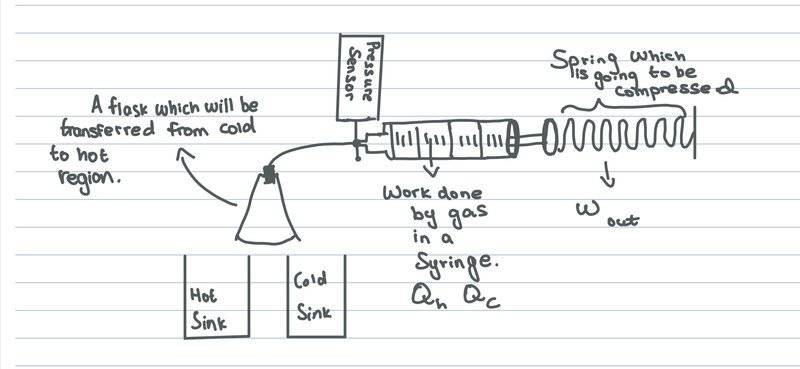 Pressure
Sensor
Spring which
is going to be
compressed
A flask which will be
transferred from cold
to hot
region.
Work done
by gas
in a
Syringe.
Qh Qc
Wout
Hot
Sink
Cold
Sink